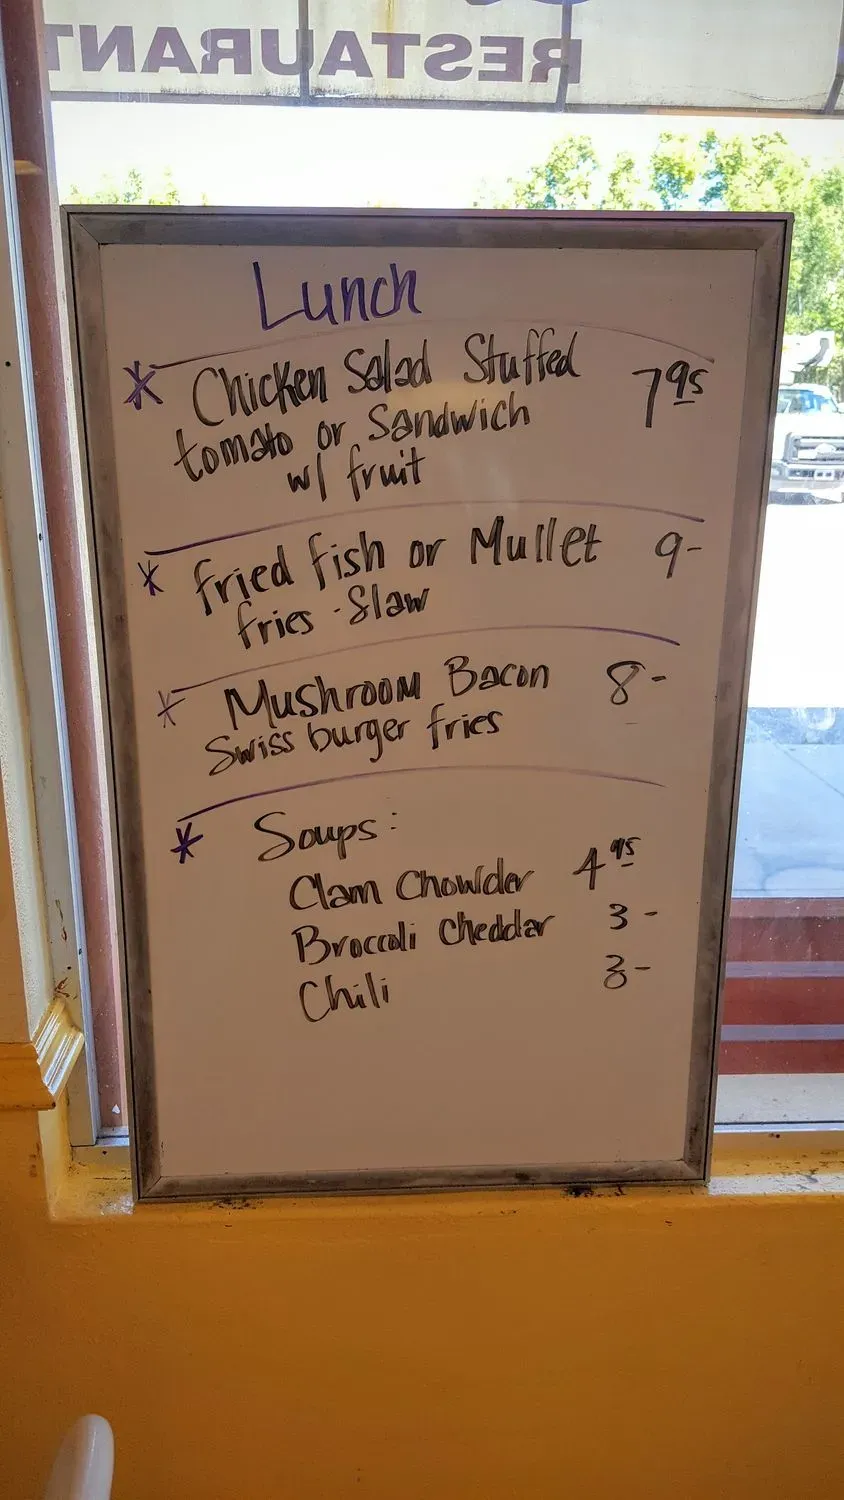 RESTAURANT
Lunch
* Chicken Salad Stuffed 7 95
tomato or Sandwich
w/ fruit
* fried fish or Mullet 9-
fries - Slaw
* Mushroom Bacon 8-
Swiss burger fries
* Soups:
Clam Chowder 4 95
Broccoli Cheddar 3-
Chili 3-